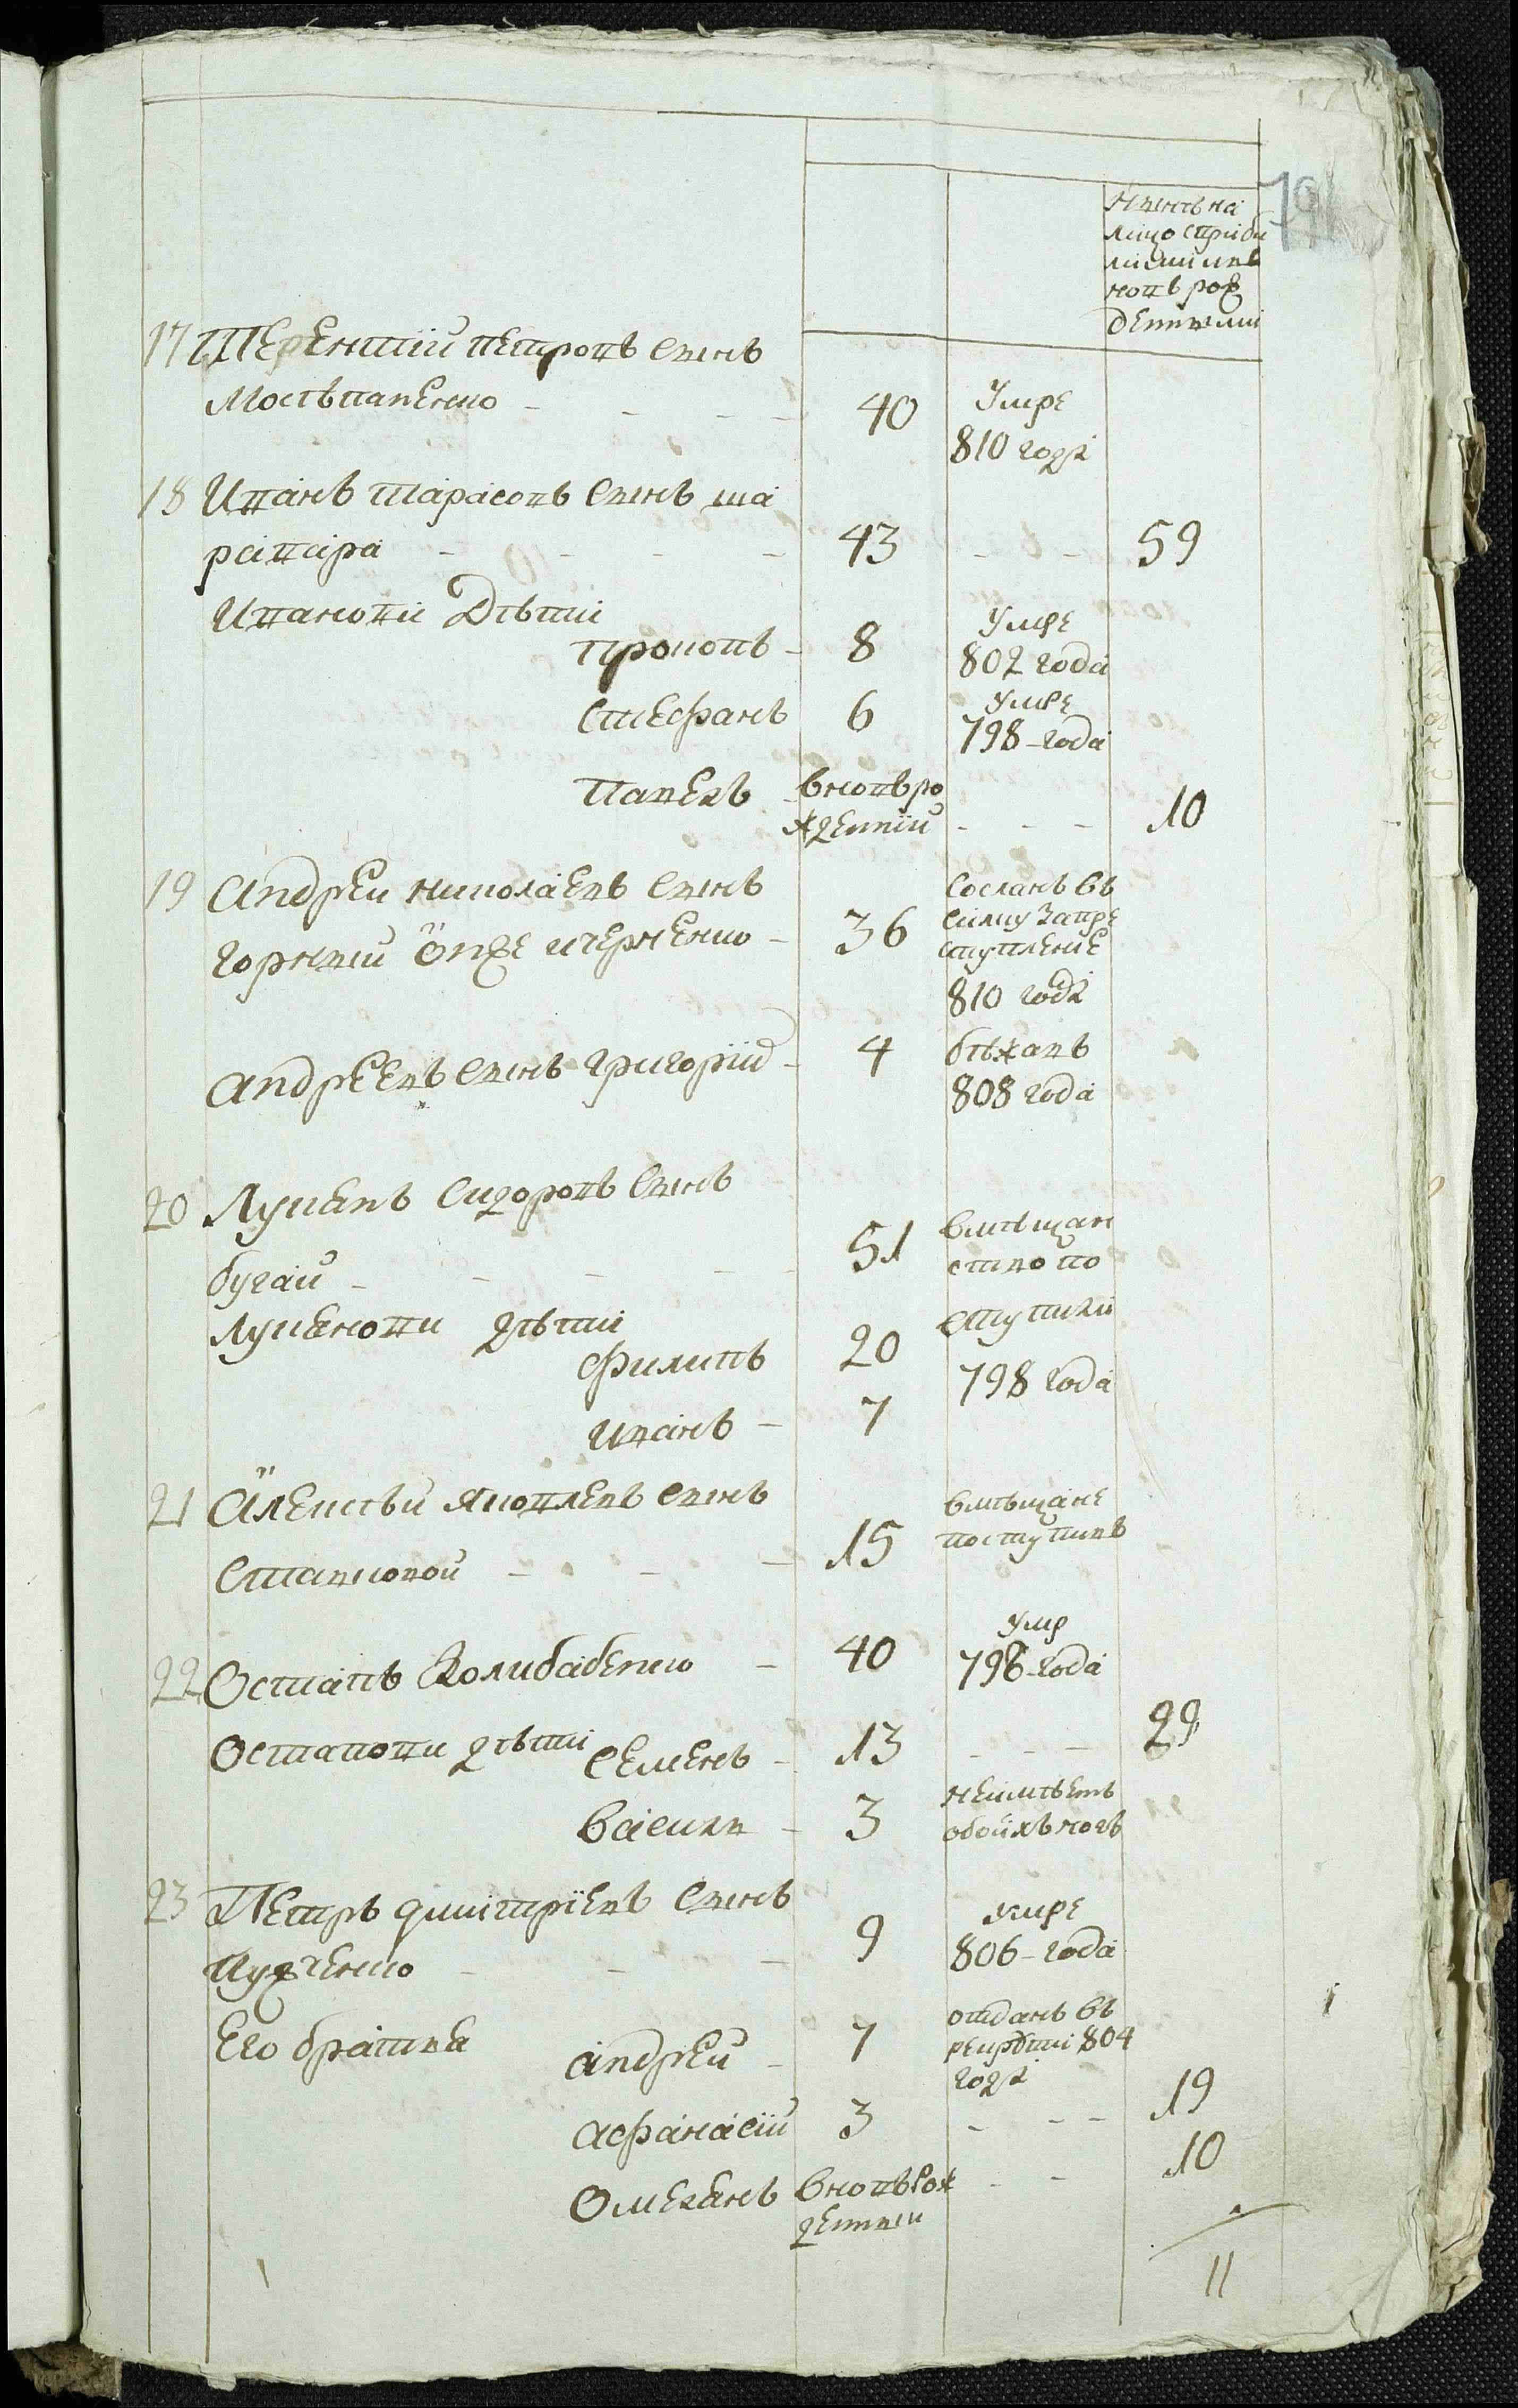 79
Нынѣ на
лицо с приб
лыми и в
новъ рож
денными
17 Терентий Петровъ сынъ
Мостъпаненко - - - - 40 Умре
810 года
18 Иванъ Тарасовъ сынъ ша
равара - - - - 43 - - 59
Ивановы дѣти
Прокопъ - 8 Умре
802 года
Стефанъ 6 Умре
798 года
Павелъ вновь ро
жденный - - - 10
19 Андрей Николаевъ сынъ
горний онже и черненко - 36
Сосланъ въ
силку за пре
ступление
810 года
Андреевъ сынъ Григорий - 4 бѣжалъ
808 года
20 Лукянъ Сидоровъ сынъ
бугай - - - - 51
в мѣщан
ство по
ступили
798 года
Лукяновы дѣти
Филипъ 20
Иванъ - 7
21 Алексѣй Яковлевъ сынъ
Становой - - - 15
в мѣщане
поступилъ
22 Остапъ Колибабенко - 40 Умр
798 года
Остаповы дѣти Семенъ - 13 - - - 29
Василь - 3 неимѣетъ
обоихъ ногъ
23 Петръ Дмитриевъ сынъ
Пудченко - - - 9 умре
806 года
Его братья Андрей - 7
отданъ въ
рекруты 804
года
Афанасий 3 - - - 19
Омелянъ вновь рож
денный - - 10
11